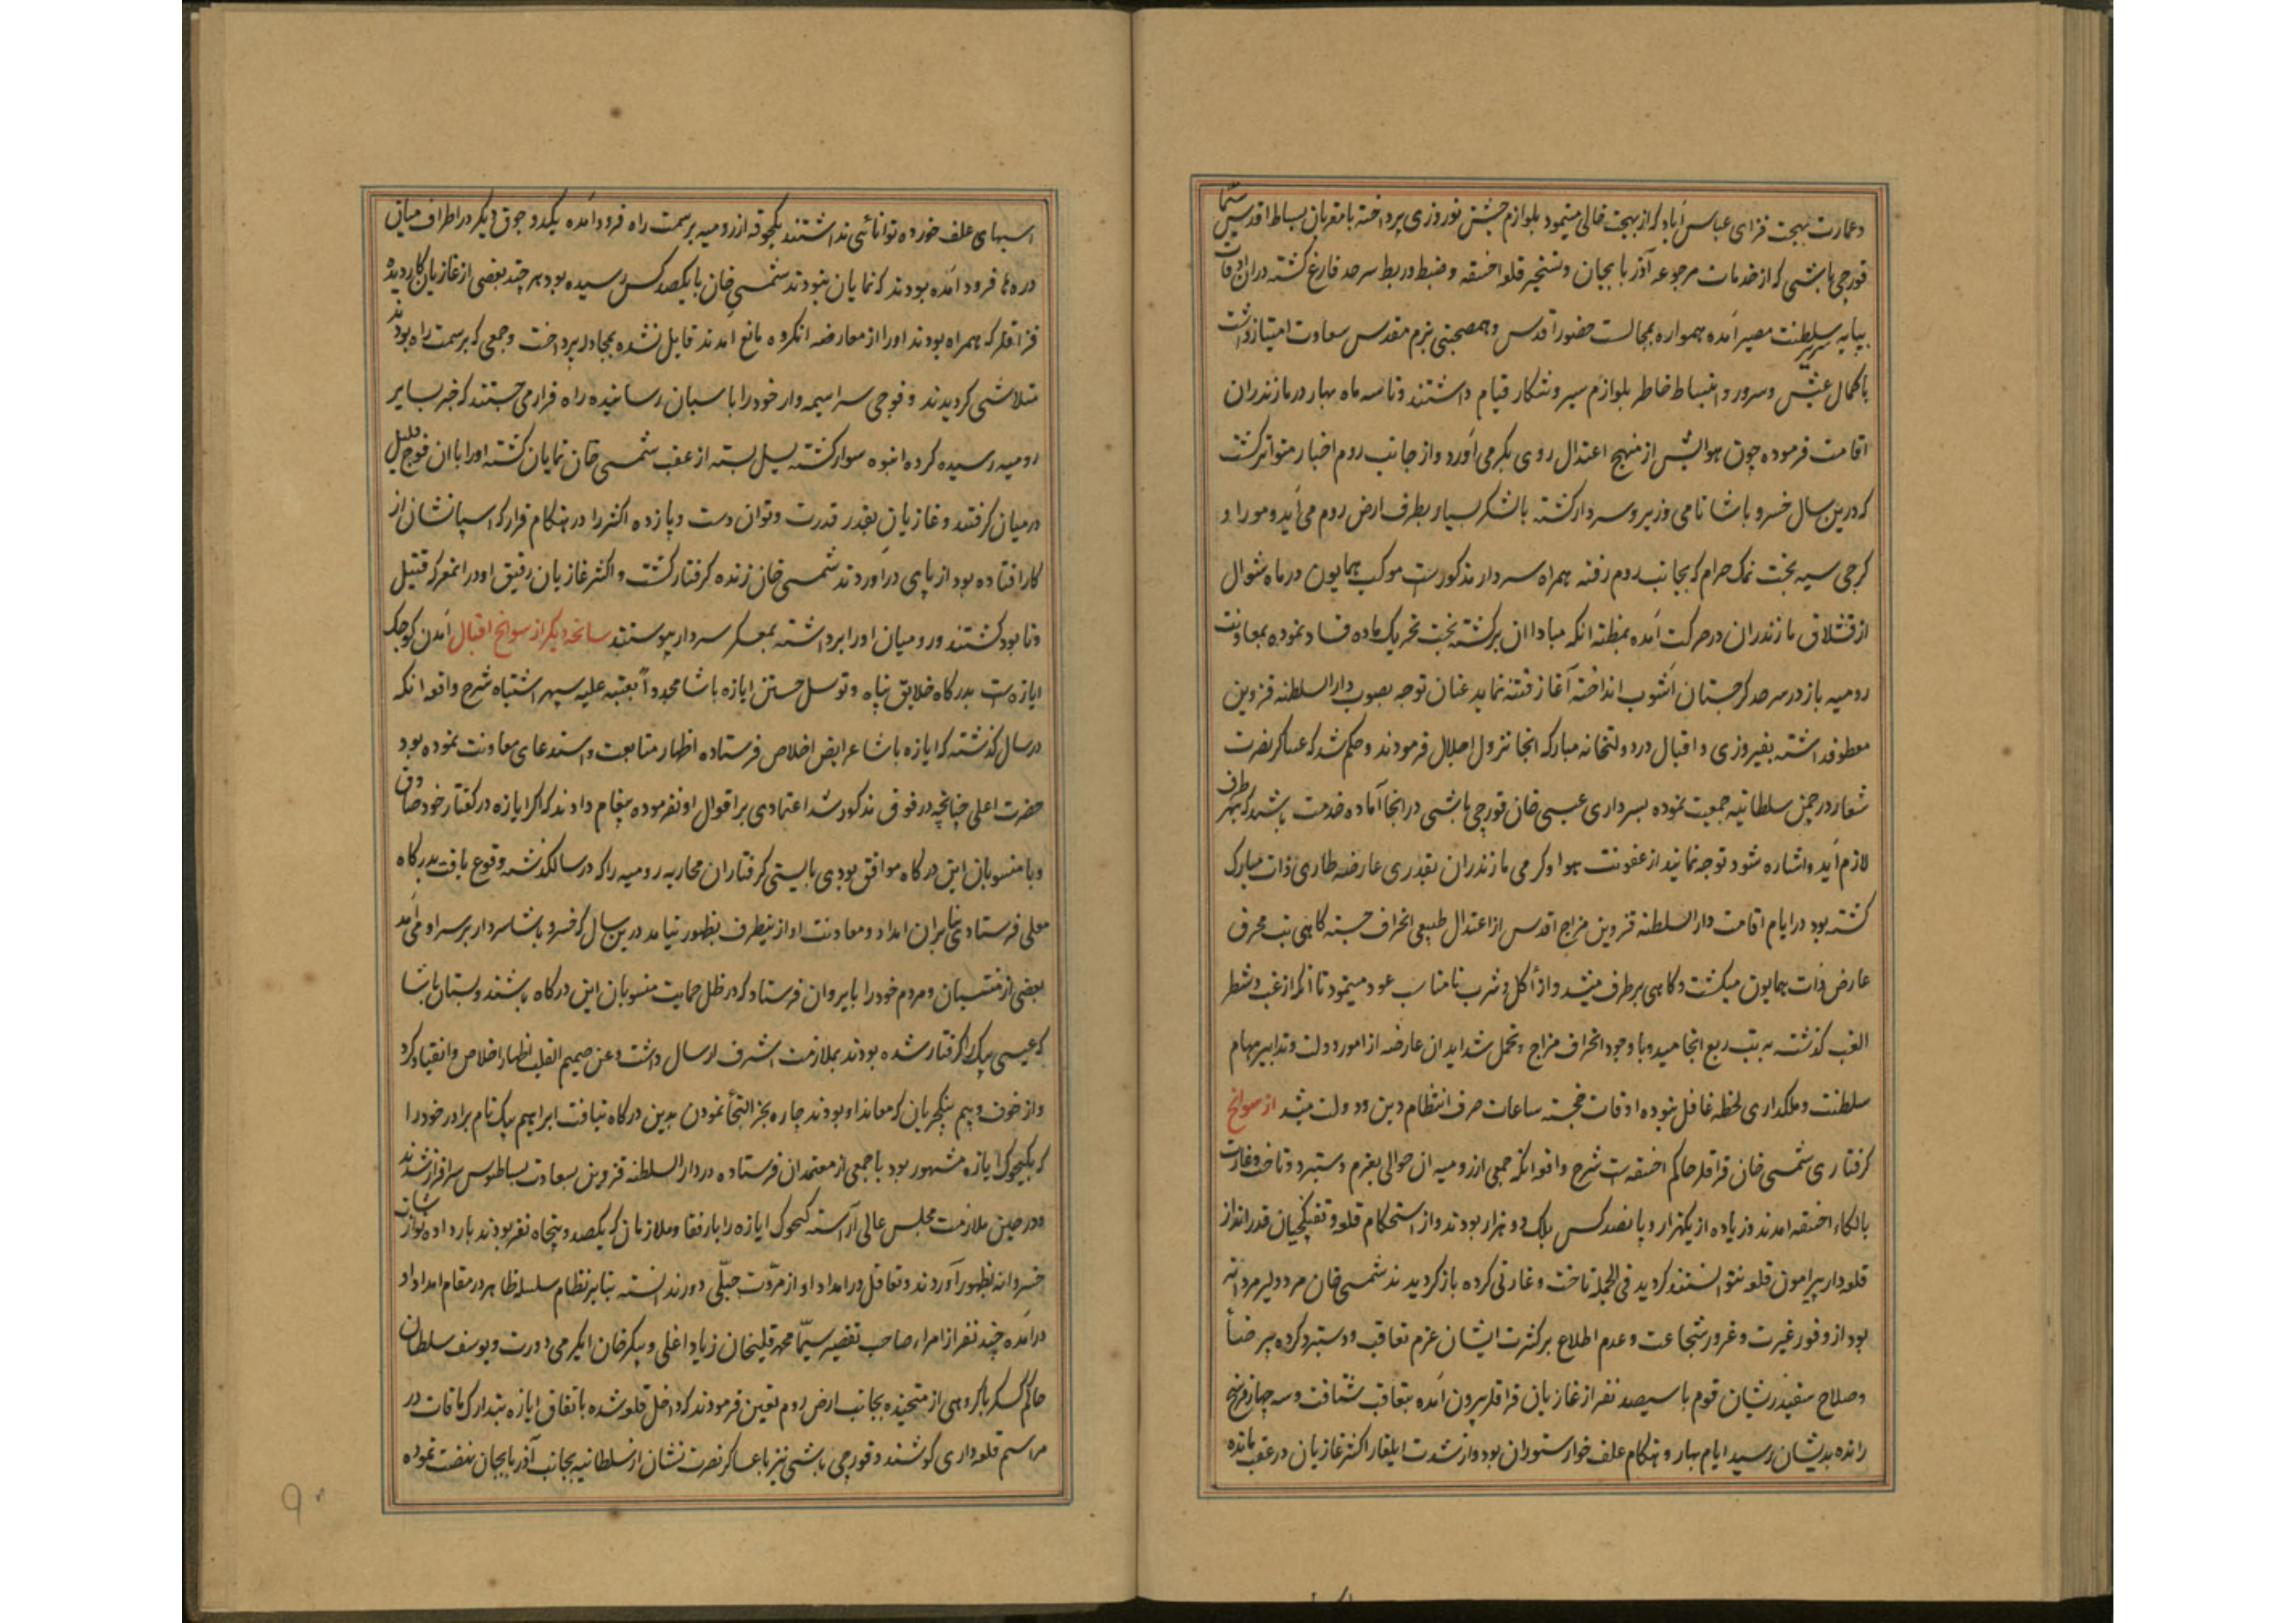 و عمارت بهجت فزای عباس آباد که از بهجت خالی مینمود بلوازم جشن نوروزی پرداخته با مقربان بساط اقدس سیما
قورچی باشی که از خدمات مرجوعه آذربایجان و تسخیر قلعه اخسقه و ضبط و ربط سرحد فارغ گشته دران اوقات
بپایه سریر سلطنت مصیر آمده همواره بمجالست حضور اقدس و همصحبتی بزم مقدس سعادت امتیاز داشت
باکمال عیش و سرور و انبساط خاطر بلوازم سیر و شکار قیام داشتند و تا سه ماه بهار در مازندران
اقامت فرموده چون هوایش از منهج اعتدال روی بگرمی آورد و از جانب روم اخبار متواتر گشت
که درین سال خسرو پاشا نامی وزیر و سردار گشته با لشکر بسیار بطرف ارض روم می آید و موراو
گرجی سیه بخت نمک حرام که بجانب روم رفته همراه سردار مذکورست موکب همایون در ماه شوال
از قشلاق مازندران در حرکت آمده بمظنه انکه مبادا ان برگشته بخت تحریک ماده فساد نموده بمعاونت
رومیه باز در سرحد گرجستان آشوب انداخته آغاز فتنه نماید عنان توجه بصوب دارالسلطنه قزوین
معطوفداشته بفیروزی و اقبال در دولتخانه مبارکه انجا نزول اجلال فرمودند و حکم شد که عساکر نصرت
شعار در چمن سلطانیه جمعیت نموده بسرداری عیسی خان قورچی باشی در انجا آماده خدمت باشند که بهر طرف
لازم آید و اشاره شود توجه نمایند از عفونت هوا و گرمی مازندران بقدری عارضه طاری ذات مبارک
گشته بود در ایام اقامت دارالسلطنه قزوین مزاج اقدس از اعتدال طبیعی انحراف جسته گاهی تب محرق
عارض ذات همایون میگشت و گاهی برطرف میشد و از اکل و شرب نامناسب عود مینمود تا انکه از غب و شطر
الغب گذشته به تب ربع انجامید و با وجود انحراف مزاج و تحمل شداید ان عارضه از امور دولت و تدابیر مهام
سلطنت و ملکداری لحظه غافل نبوده اوقات خجسته ساعات صرف انتظام دین و دولت میشد از سوانح
گرفتاری شمسی خان قزاقلر حاکم اخسقه ست شرح واقعه انکه جمعی از رومیه ان حوالی بعزم دستبرد و تاخت و غارت
بالکاء اخسقه امدند و زیاده از یکهزار و پانصد کس بلکه دو هزار بودند و از استحکام قلعه و تفنگچیان قدرانداز
قلعه دار پیرامون قلعه نتوانستند گردید فی الجمله تاخت و غارتی کرده بازگردیدند شمسی خان مرد دلیر مردانه
بود از وفور غیرت و غرور شجاعت و عدم اطلاع بر کثرت ایشان عزم تعاقب و دستبرد کرده بیرضا
و صلاح سفیدریشان قوم با سیصد نفر از غازیان قزاقلر بیرون آمده بتعاقب شتافت و سه چهار فرسخ
رانده بدیشان رسید ایام بهار و هنگام علف خوار ستوران بود و از شدت ایلغار اکثر غازیان در عقب مانده
اسبهای علف خورده توانائی نداشتند یکجوقه از رومیه بر سمت راه فرود آمده یکدو جوق دیگر در اطراف میان
دره ها فرود آمده بودند که نمایان نبودند شمسی خان با یکصد کس رسیده بود هر چند بعضی از غازیان کاردیده
قزاقلر که همراه بودند او را از معارضه انگروه مانع امدند قایل نشده بمجادله پرداخت و جمعی که بر سمت راه بودند
متلاشی گردیدند و فوجی سراسیمه وار خود را باسبان رسانیده راه فرار می جستند که خبر بسایر
رومیه رسیده گروه انبوه سوار گشته یسل بسته از عقب شمسی خان نمایان گشته او را با ان فوج قلیل
در میان گرفتند و غازیان بقدر قدرت و توان دست و پا زده اکثر را در هنگام فرار که اسپانشان از
کار افتاده بود از پای درآوردند شمسی خان زنده گرفتار گشت و اکثر غازیان رفیق او در انمعرکه قتیل
و نابود گشتند و رومیان او را برداشته بمعسکر سردار پیوستند سانحه دیگر از سوانح اقبال آمدن کوچک
ابازه ست بدرگاه خلایق پناه و توسل جستن ابازه پاشا مجدداً بعتبه علیه سپهر اشتباه شرح واقعه انکه
در سال گذشته که ابازه پاشا عرایض اخلاص فرستاده اظهار متابعت و استدعای معاونت نموده بود
حضرت اعلی چنانچه در فوق مذکور شد اعتمادی بر اقوال او نفرموده پیغام دادند که اگر ابازه در گفتار خود صادق
و با منسوبان این درگاه موافق بودی بایستی گرفتاران محاربه رومیه را که در سال گذشته وقوع یافت بدرگاه
معلی فرستادی بنابران امداد و معاونت او از ینطرف بظهور نیامد درین سال که خسرو پاشا سردار بر سر او می آمد
بعضی از منتسبان و مردم خود را بایروان فرستاد که در ظل حمایت منسوبان این درگاه باشند و بستان پاشا
که عیسی بیک گرفتار شده بودند بملازمت اشرف ارسال داشت و عن صمیم القلب اظهار اخلاص و انقیاد کرد
و از خوف و بیم ینکچریان که معاند او بودند چاره بجز التجا نمودن بدین درگاه نیافت ابراهیم بیک نام برادر خود را
که بکیچوک ابازه مشهور بود با جمعی از معتمدان فرستاده در دارالسلطنه قزوین بسعادت بساطبوس سرافراز شدند
و در حین ملازمت مجلس عالی آراسته کیچوک ابازه را با رفقا و ملازمان که یکصد و پنجاه نفر بودند بار داده نوازشات
خسروانه بظهور آوردند و تغافل در امداد او از مروّت جبلّی دور ندانسته بنابر نظام سلسله ظاهر در مقام امداد او
درآمده چند نفر از امراء صاحب تقصیر سیّما محمدقلیخان زیاد اغلی و پیکرخان ایگرمی دورت و یوسف سلطان
حاکم کسکر با گروهی از متجنده بجانب ارض روم تعیین فرمودند که داخل قلعه شده باتفاق ابازه بتدارک مافات در
مراسم قلعه داری کوشند و قورچی باشی نیز با عساکر نصرت نشان از سلطانیه بجانب آذربایجان نهضت نموده